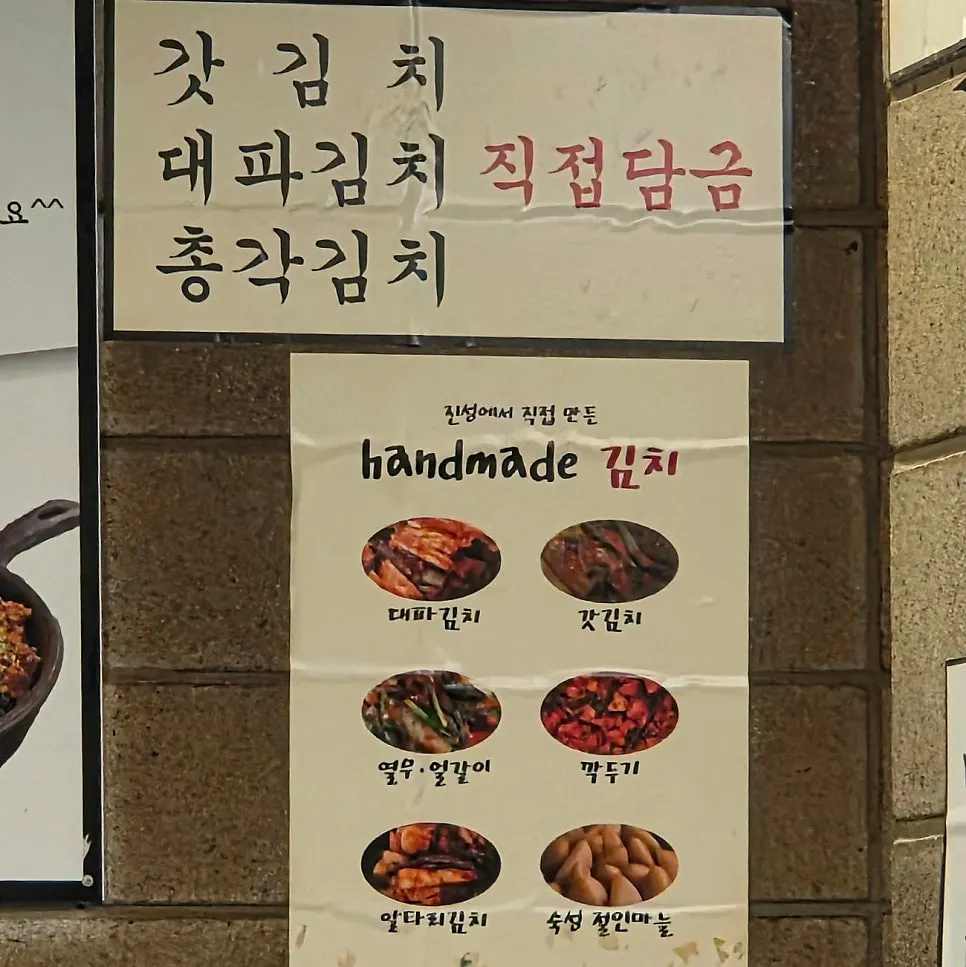 갓김치
대파김치 직접담금
총각김치
요^^
진성에서 직접 만든
handmade 김치
대파김치 갓김치
열무·얼갈이 깍두기
알타리김치 숙성 절인마늘